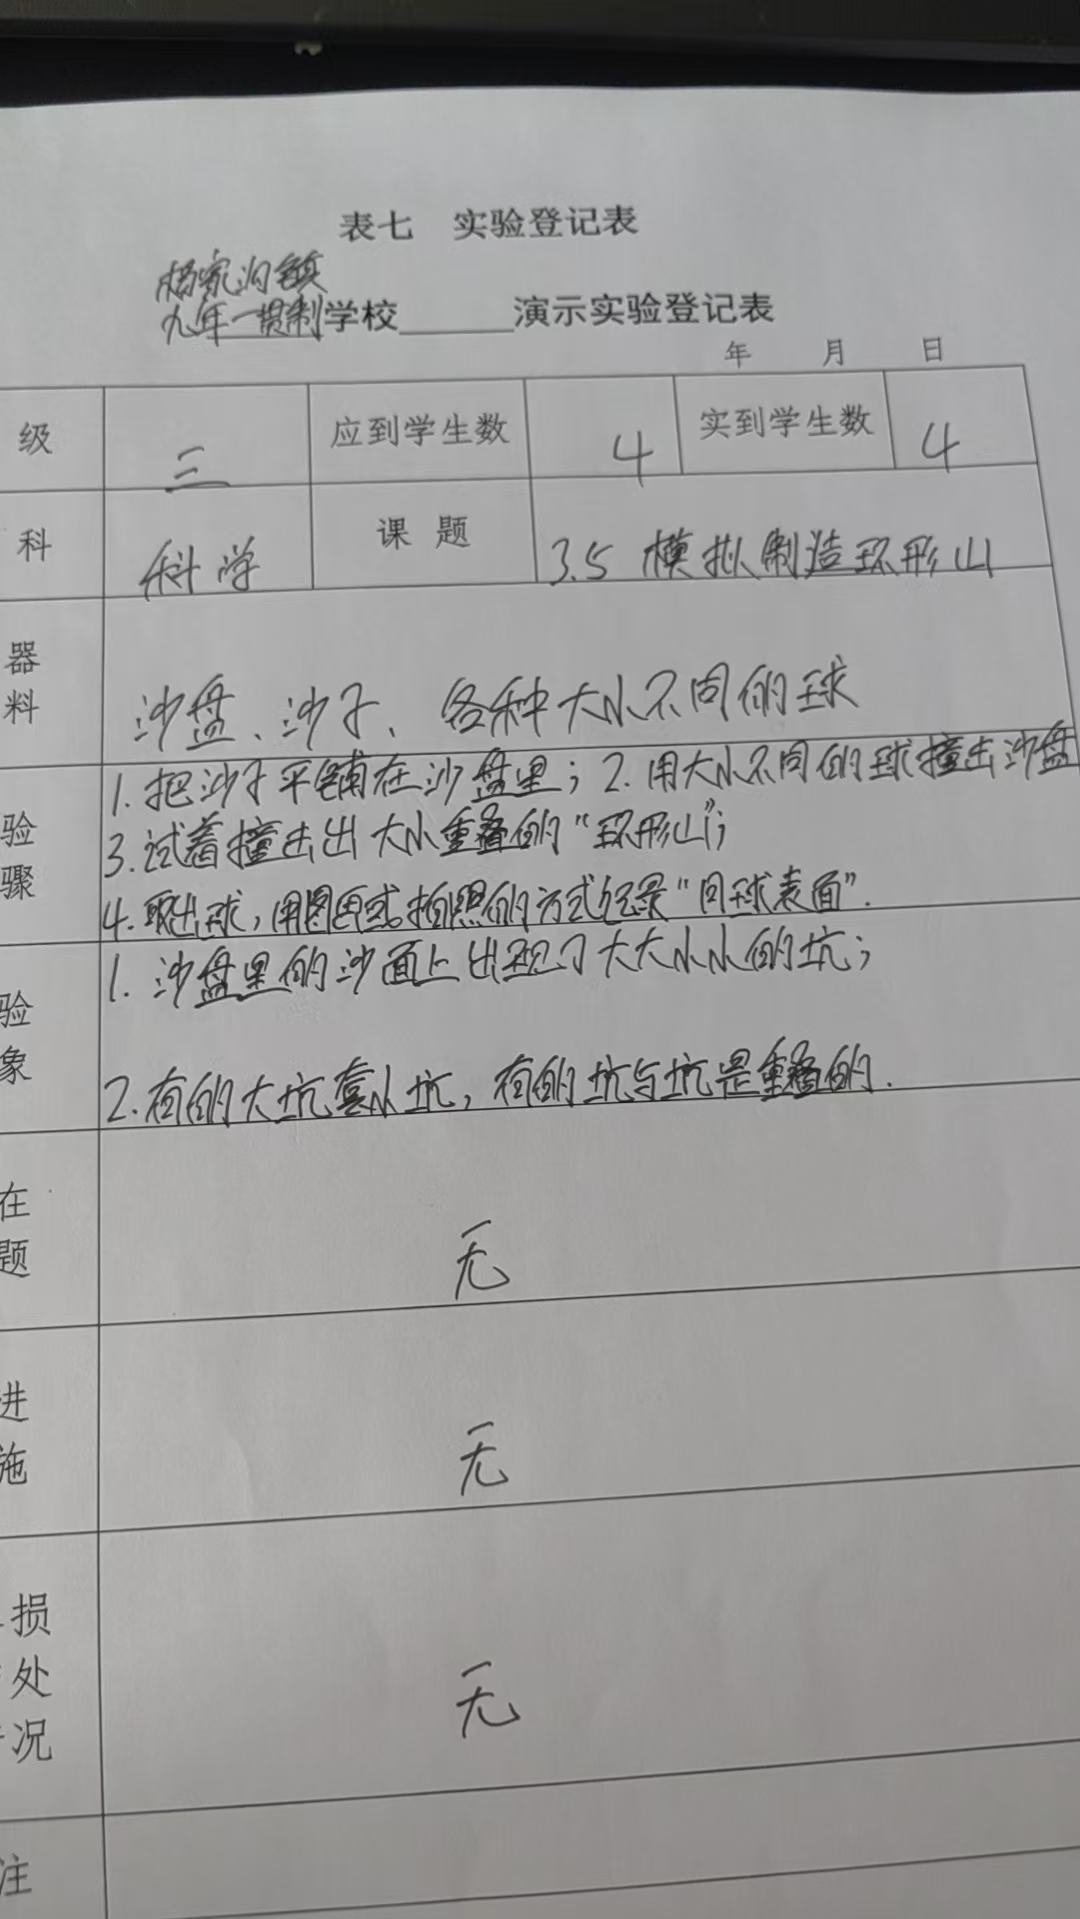 表七 实验登记表
杨家沟镇
九年一贯制学校______演示实验登记表
年 月 日
级 三 应到学生数 4 实到学生数 4
科 科学 课题 3.5 模拟制造环形山
器
料
沙盘、沙子、各种大小不同的球
验
骤
1. 把沙子平铺在沙盘里；2. 用大小不同的球撞击沙盘
3. 试着撞击出大小重叠的“环形山”；
4. 取出球，用图画或拍照的方式记录“月球表面”.
验
象
1. 沙盘里的沙面上出现了大大小小的坑；
2. 有的大坑套小坑，有的坑与坑是重叠的.
在
题
无
进
施
无
损
处
况
无
注